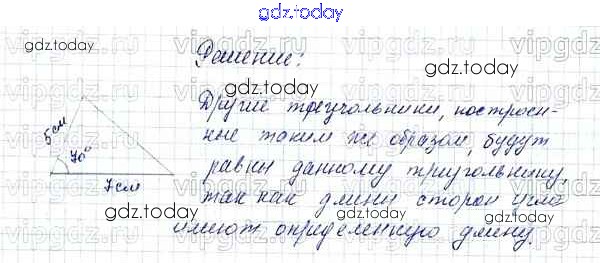 gdz.today
vipgdz.ru
gdz.today
Решение:
gdz.today
Другие треугольники, построен-
ные таким же образом, будут
равны данному триугольнику,
так как длины сторон и угла
имеют определенную длину.
5 см
70°
7 см
gdz.today
gdz.today
gdz.today
gdz.today